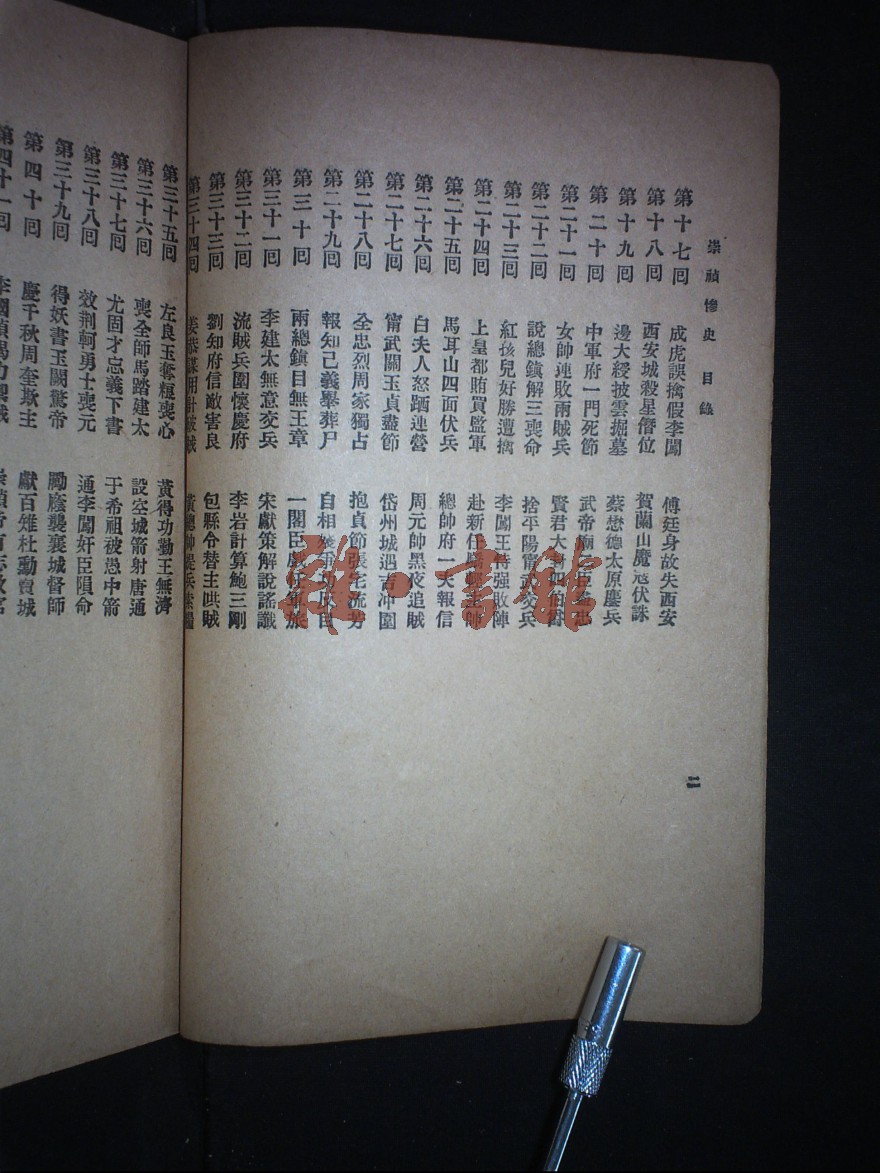 崇禎慘史 目錄
二
第十七囘 成虎誤擒假李闖 傅廷身故失西安
第十八囘 西安城殺星僭位 賀蘭山魔寇伏誅
第十九囘 邊大綬披雲掘墓 蔡懋德太原鏖兵
第二十囘 中軍府一門死節 武帝廟 臣盡忠
第二十一囘 女帥連敗兩賊兵 賢君大 四伯爵
第二十二囘 說總鎮解三喪命 捨平陽 武交兵
第二十三囘 紅孩兒好勝遭擒 李闖王恃强敗陣
第二十四囘 上皇都賄買監軍 赴新任 帥
第二十五囘 馬耳山四面伏兵 總帥府一天報信
第二十六囘 白夫人怒踹連營 周元帥黑夜追賊
第二十七囘 甯武關玉貞盡節 岱州城遇吉冲圍
第二十八囘 全忠烈周家獨占 抱貞節張宅流芳
第二十九囘 報知己義舉葬尸 自相 爭功
第三十囘 兩總鎮目無王章 一閣臣 軍旅
第三十一囘 李建太無意交兵 宋獻策解說謠讖
第三十二囘 流賊兵圍懷慶府 李岩計算鮑三剛
第三十三囘 劉知府信敵害良 包縣令替主哄賊
第三十四囘 用計破賊 黃總帥提兵索
第三十五囘 左良玉奪糧喪心 黃得功勤王無濟
第三十六囘 喪全師馬踏建太 設空城箭射唐通
第三十七囘 尤固才忠義下書 于希祖被恿中箭
第三十八囘 效荆軻勇士喪元 通李闖奸臣隕命
第三十九囘 得妖書玉闕驚帝 勵廕襲襄城督師
第四十囘 慶千秋周奎欺主 獻百雉杜勳賣城
第四十一囘 李國禎